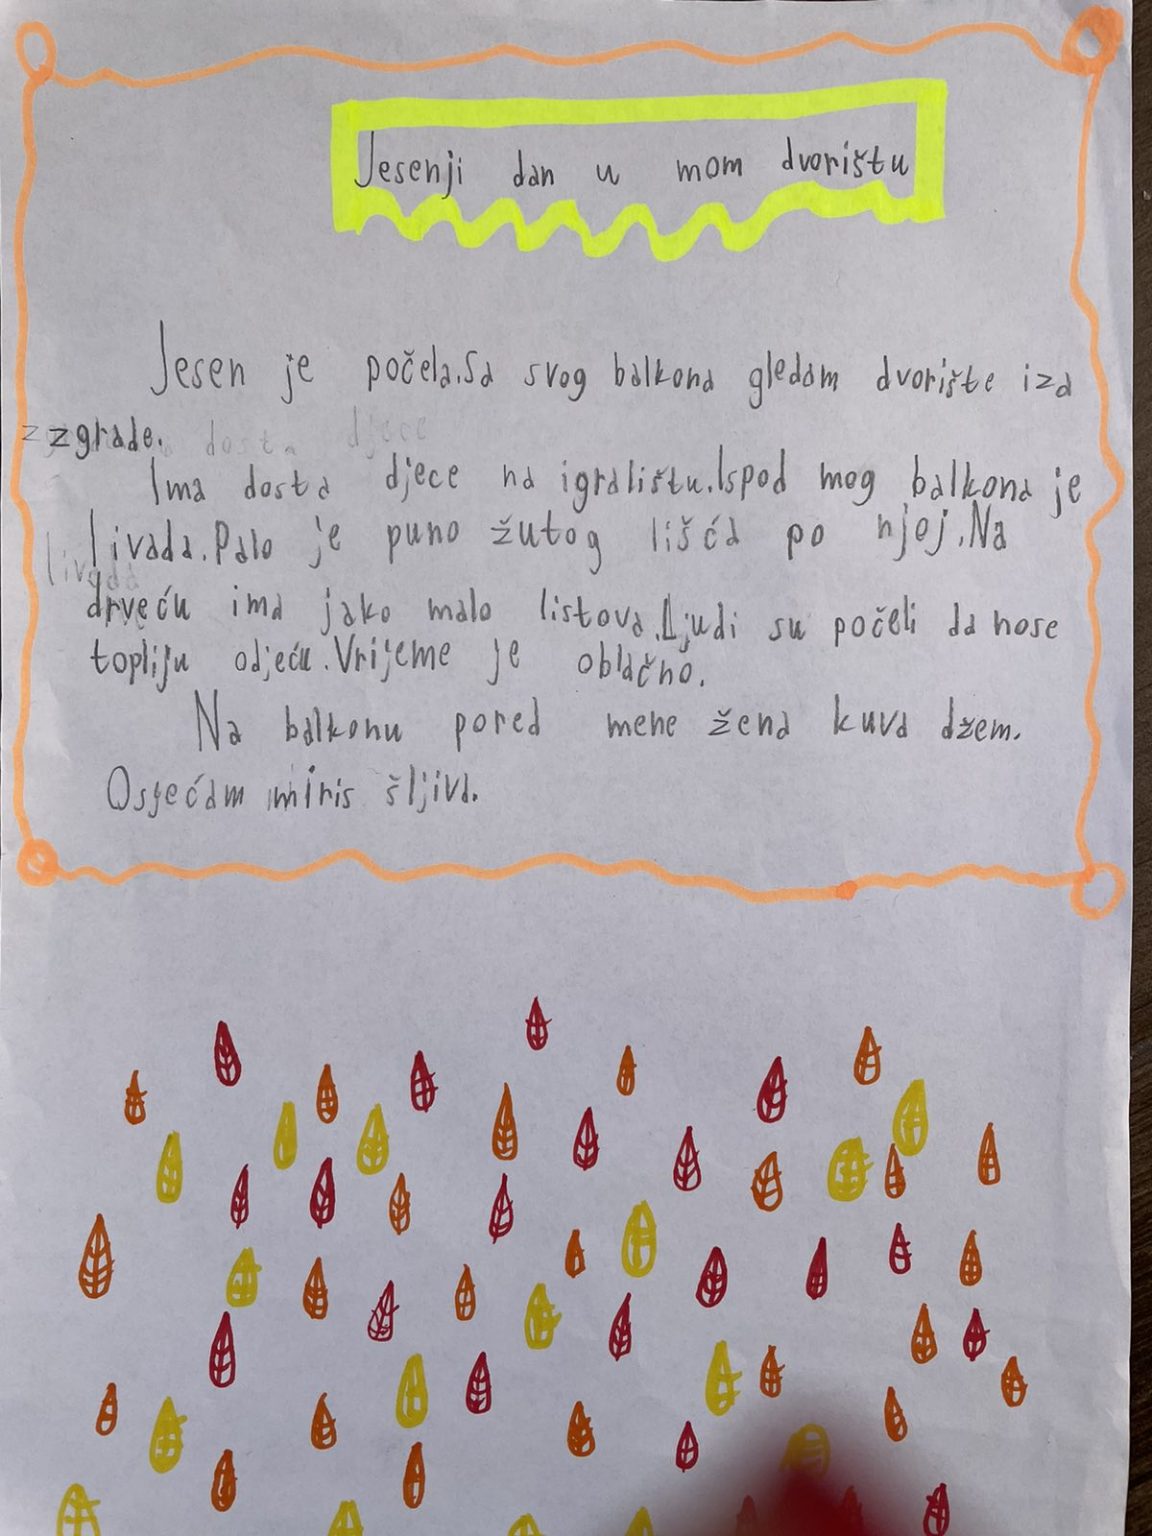 Jesenji dan u mom dvorištu
Jesen je počela.Sa svog balkona gledam dvorište iza
zgrade.
Ima dosta djece na igralištu.Ispod mog balkona je
livada.Palo je puno žutog lišća po njoj.Na
drveću ima jako malo listova.Ljudi su počeli da nose
topliju odjeću.Vrijeme je oblačno.
Na balkonu pored mene žena kuva džem.
Osjećam miris šljiva.